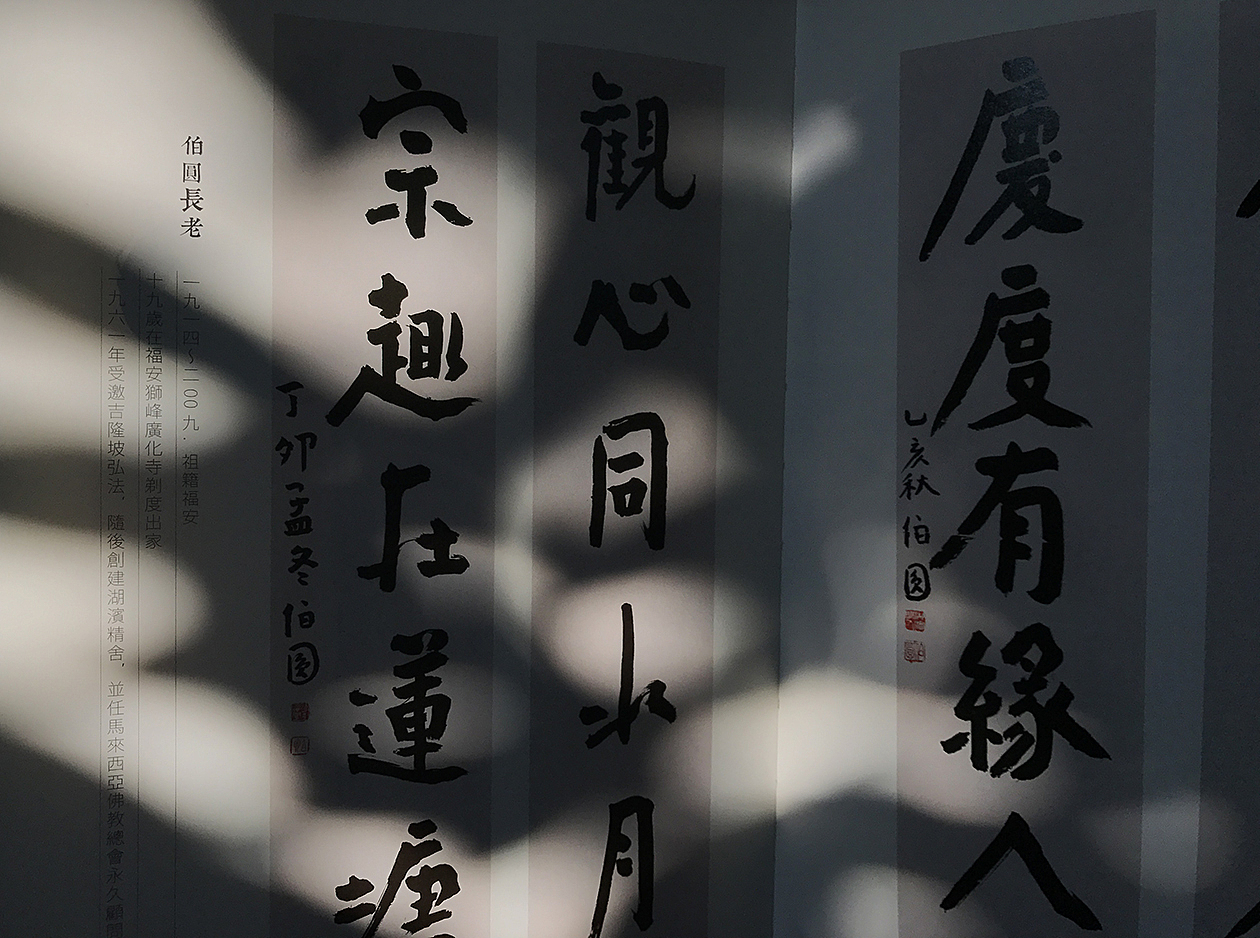 慶度有緣人
乙亥秋 伯圓
觀心同水月
宗趣在蓮塘
丁卯孟冬 伯圓
伯圓長老
一九一四~二00九．祖籍福安
十九歲在福安獅峰廣化寺剃度出家
一九六一年受邀吉隆坡弘法，隨後創建湖濱精舍，並任馬來西亞佛教總會永久顧問